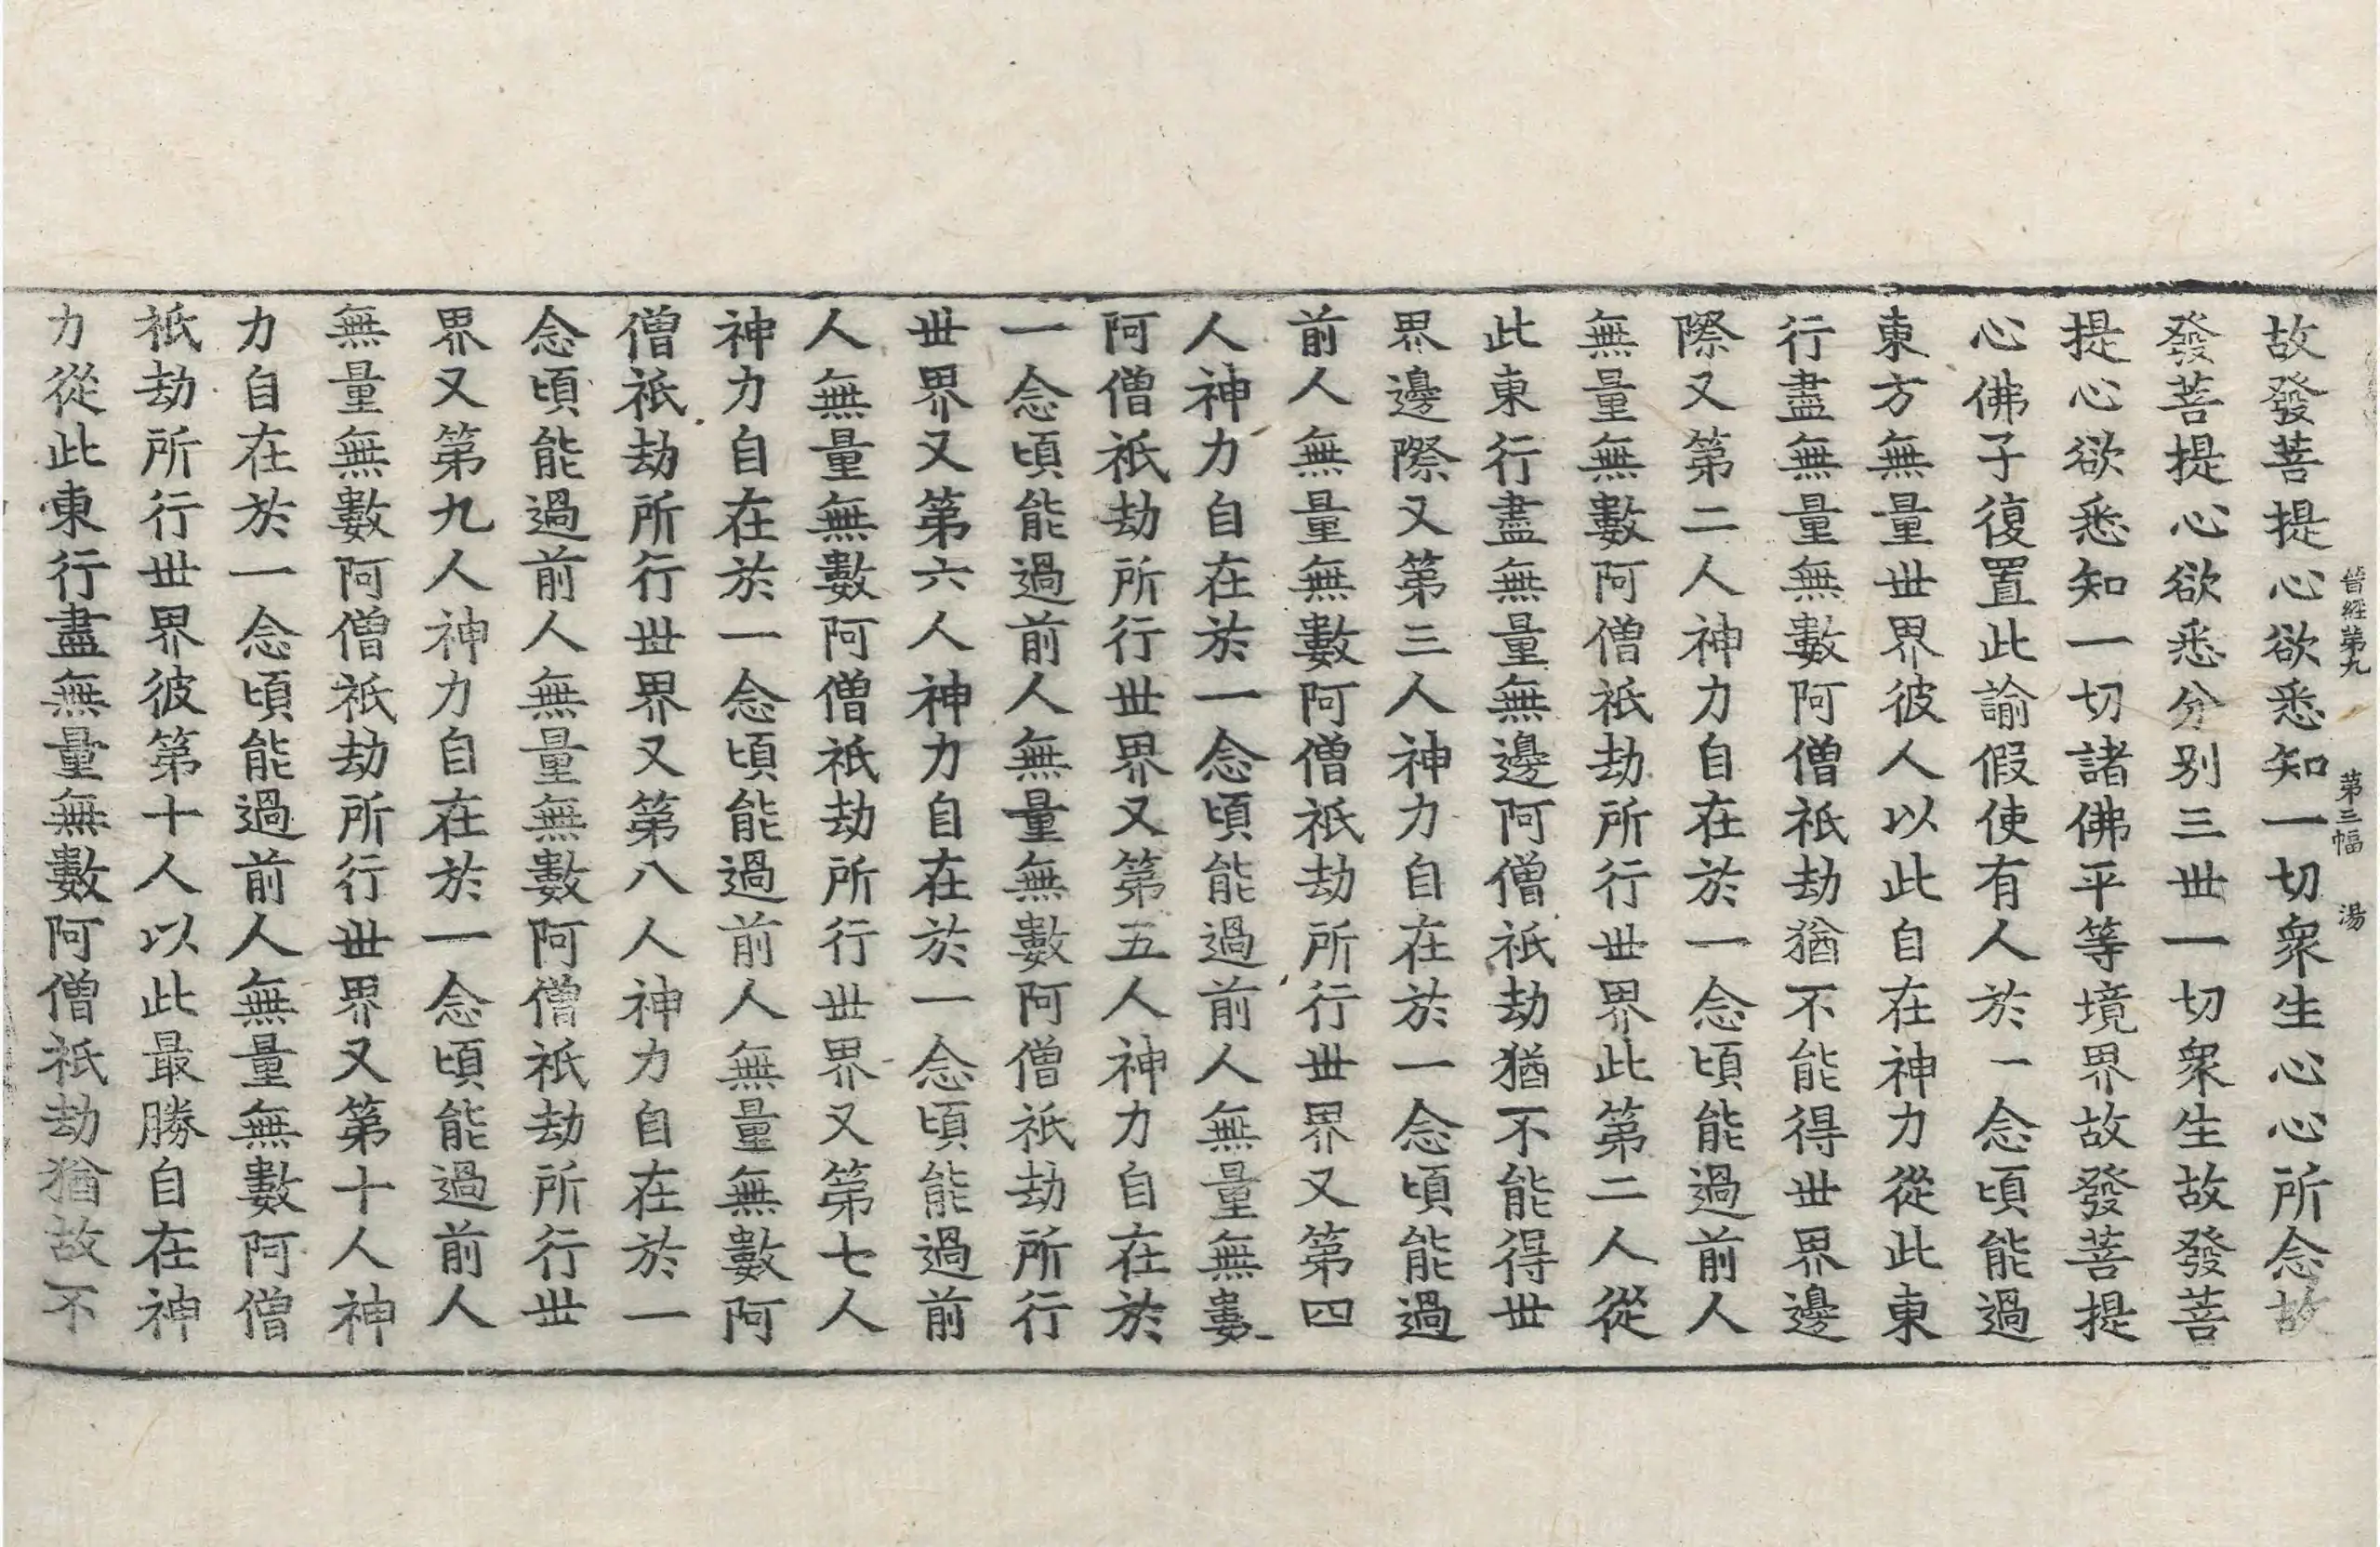 晉經第九 第三幅 湯
故發菩提心欲悉知一切衆生心心所念故
發菩提心欲悉分别三世一切衆生故發菩
提心欲悉知一切諸佛平等境界故發菩提
心佛子復置此諭假使有人於一念頃能過
東方無量世界彼人以此自在神力從此東
行盡無量無數阿僧祇劫猶不能得世界邊
際又第二人神力自在於一念頃能過前人
無量無數阿僧祇劫所行世界此第二人從
此東行盡無量無邊阿僧祇劫猶不能得世
界邊際又第三人神力自在於一念頃能過
前人無量無數阿僧祇劫所行世界又第四
人神力自在於一念頃能過前人無量無數
阿僧祇劫所行世界又第五人神力自在於
一念頃能過前人無量無數阿僧祇劫所行
世界又第六人神力自在於一念頃能過前
人無量無數阿僧祇劫所行世界又第七人
神力自在於一念頃能過前人無量無數阿
僧祇劫所行世界又第八人神力自在於一
念頃能過前人無量無數阿僧祇劫所行世
界又第九人神力自在於一念頃能過前人
無量無數阿僧祇劫所行世界又第十人神
力自在於一念頃能過前人無量無數阿僧
祇劫所行世界彼第十人以此最勝自在神
力從此東行盡無量無數阿僧祇劫猶故不